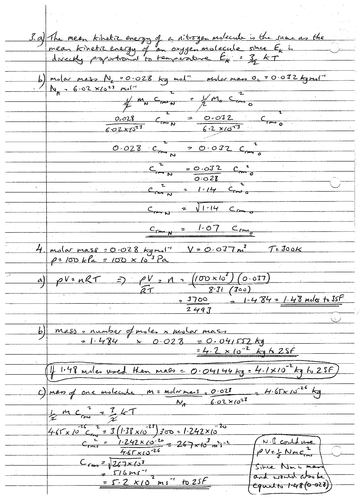 3.a) The mean kinetic energy of a nitrogen molecule is the same as the
mean kinetic energy of an oxygen molecule since Eₖ is
directly proportional to temperature Eₖ = 3/2 kT
b) molar mass N₂ = 0.028 kg mol⁻¹ molar mass O₂ = 0.032 kg mol⁻¹
Nₐ = 6.02 x 10²³ mol⁻¹
1/2 m_N C_rms²_N = 1/2 m_O C_rms²_O
0.028/6.02x10²³ C_rms²_N = 0.032/6.2x10²³ C_rms²_O
0.028 C_rms²_N = 0.032 C_rms²_O
C_rms²_N = 0.032/0.028 C_rms²_O
C_rms²_N = 1.14 C_rms²_O
C_rms_N = √1.14 C_rms_O
C_rms_N = 1.07 C_rms_O
4. molar mass = 0.028 kg mol⁻¹ V = 0.037 m³ T = 300K
p = 100 kPa = 100 x 10³ Pa
a) pV = nRT ⇒ pV/RT = n = (100x10³)(0.037)/8.31 (300)
= 3700/2493 = 1.484 = 1.48 moles to 3SF
b) mass = number of moles x molar mass
= 1.484 x 0.028 = 0.041552 kg
= 4.2 x 10⁻² kg to 2SF
If 1.48 moles used then mass = 0.04144 kg = 4.1x10⁻² kg to 2SF
c) mass of one molecule m = molar mass/Nₐ = 0.028/6.02x10²³ = 4.65x10⁻²⁶ kg
1/2 m C_rms² = 3/2 kT
4.65x10⁻²⁶ C_rms² = 3(1.38x10⁻²³)300 = 1.242x10⁻²⁰
C_rms² = 1.242x10⁻²⁰/4.65x10⁻²⁶ = 267x10³ m²s⁻²
C_rms = √267x10³
= 516 ms⁻¹
= 5.2 x 10² ms⁻¹ to 2SF
N.B could use
pV = 1/3 Nmc²_rms
Since Nm = mass
and would also be
equal to 1.48(0.028)